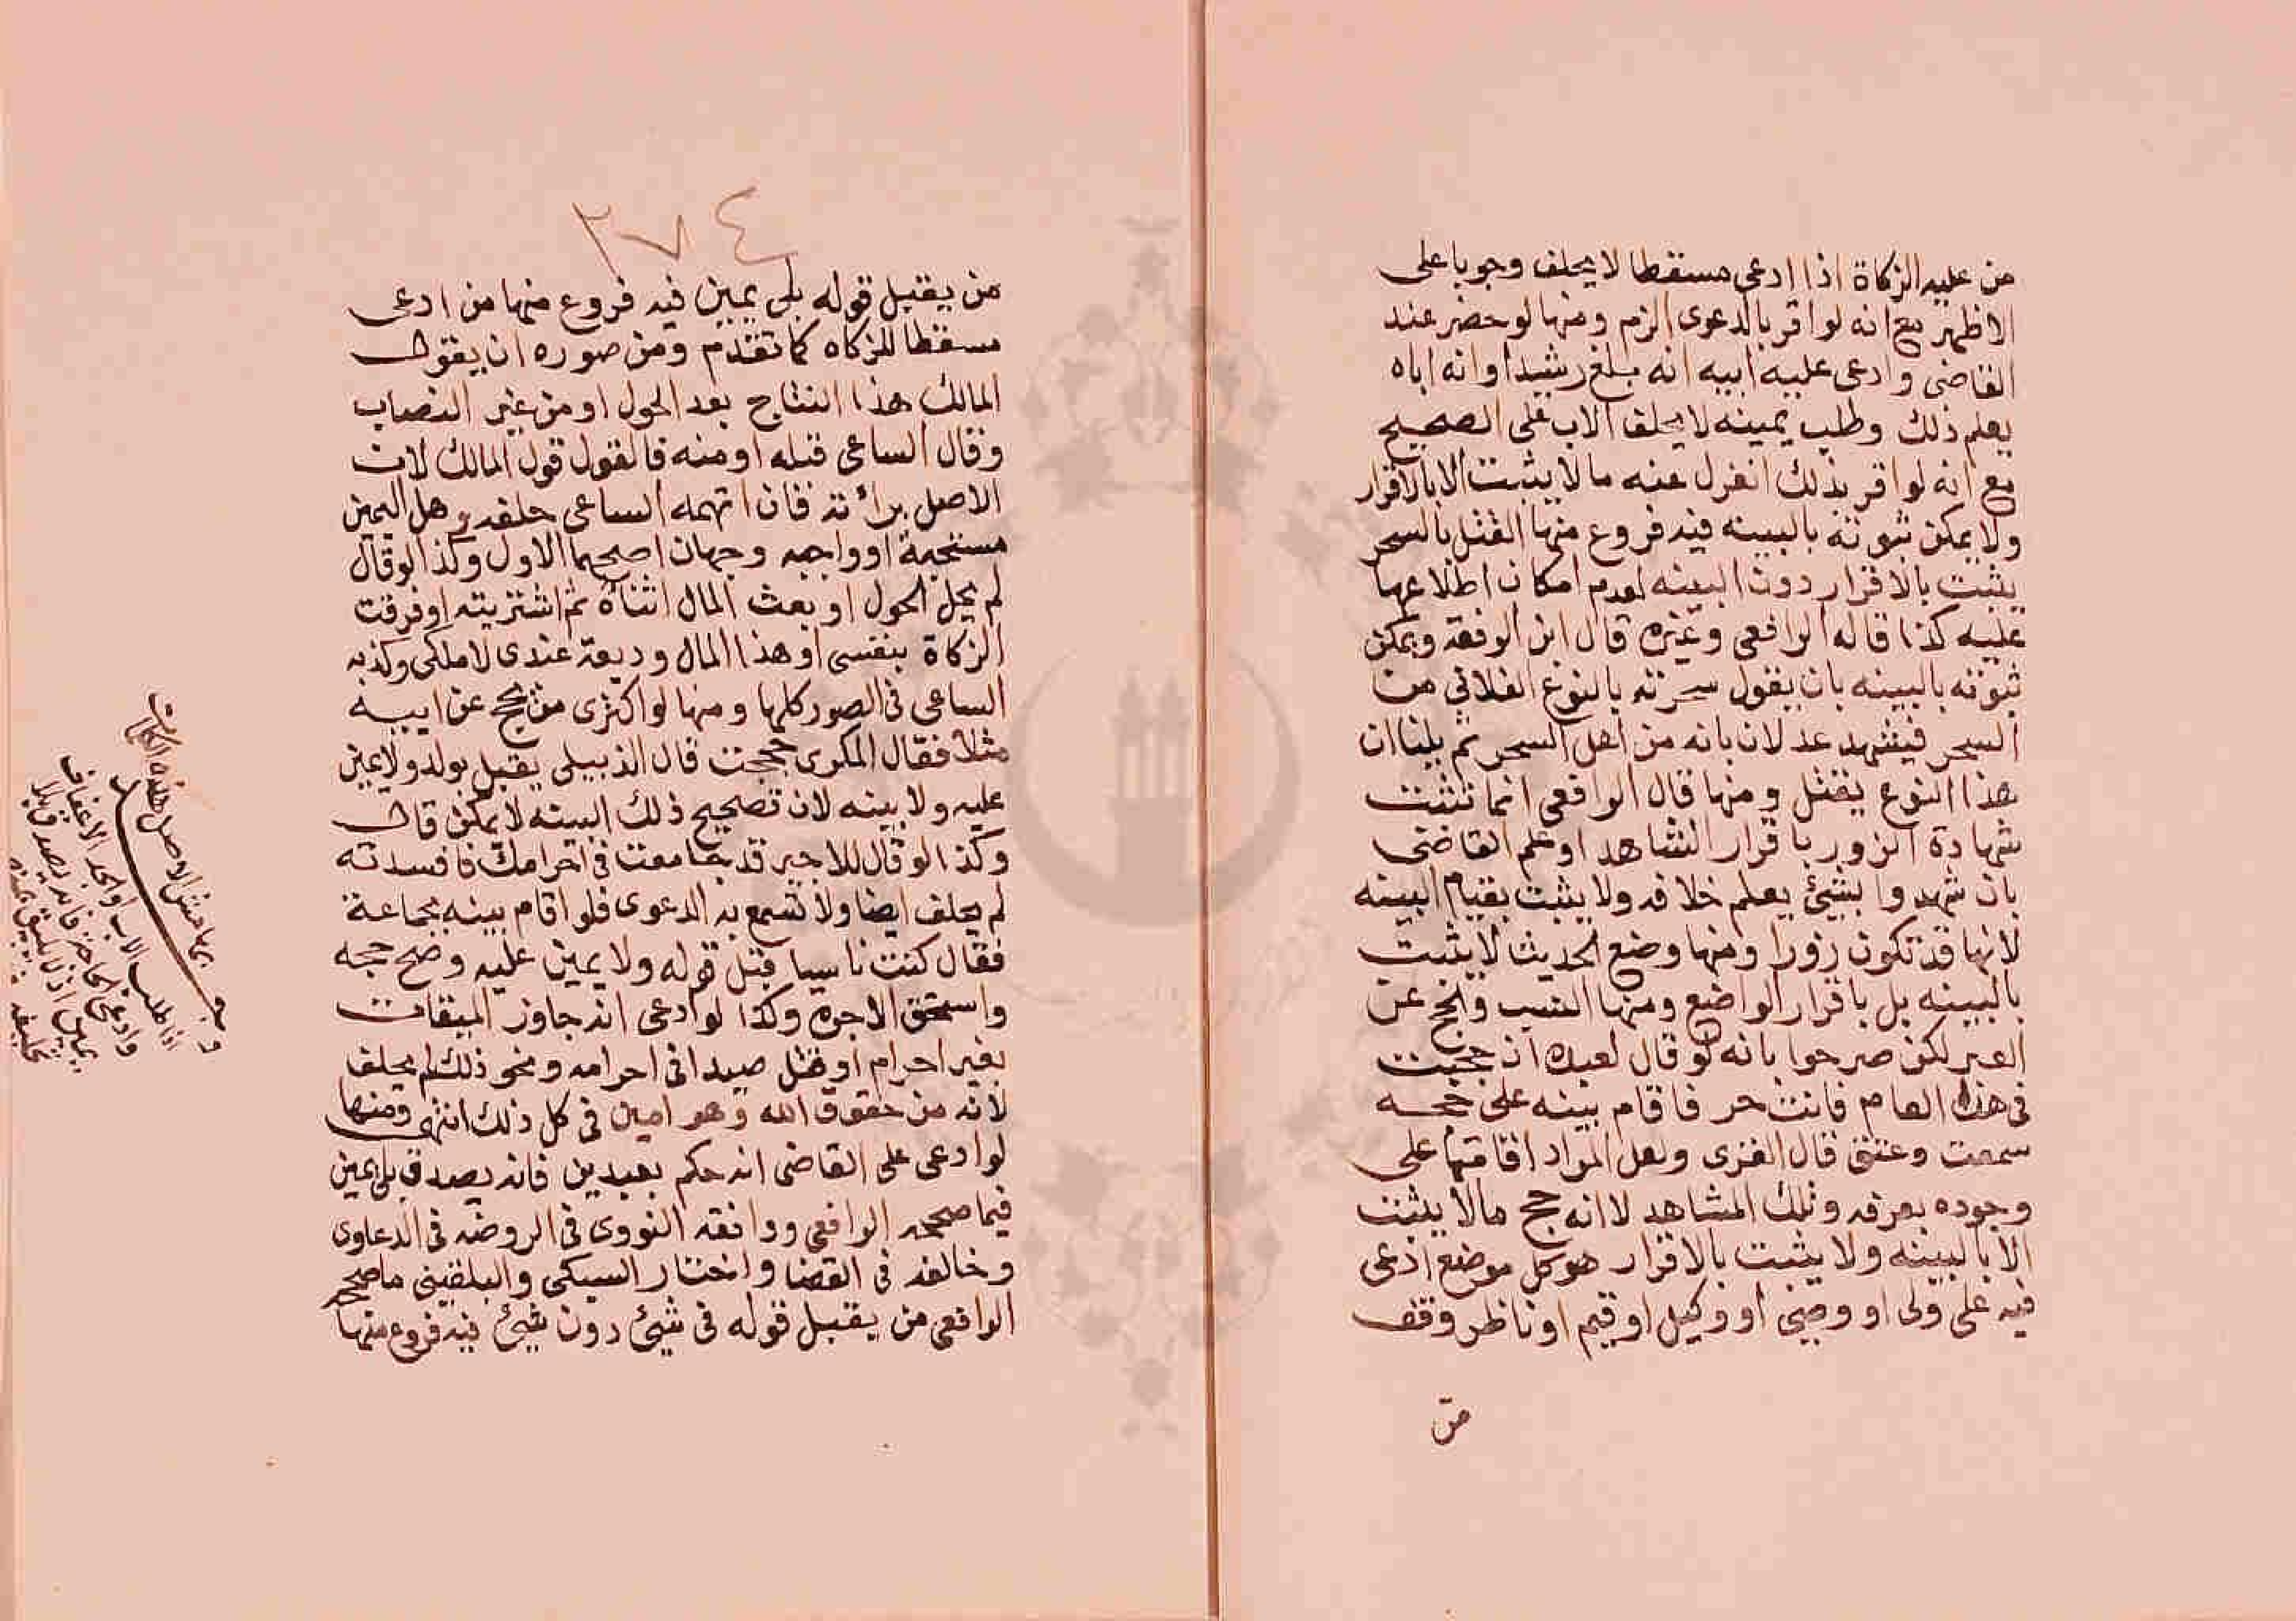 من عليه الزكاة اذا ادعى مسقطا لا يحلف وجوبا على
الاظهر مع انه لو اقر بالدعوى الزم ومنها لو حضر عند
القاضى وادعى عليه ابيه انه بلغ رشيدا وانه اباه
يعلم ذلك وطلب يمينه لا يحلف الاب على الصحيح
مع انه لو اقر بذلك انعزل عنه ما لا يثبت الا بالاقرار
ولا يمكن ثبوته بالبينه فيه فروع منها القتل بالسحر
يثبت بالاقرار دون البينه لعدم امكان اطلاعها
عليه كذا قاله الرافعى وغيره قال ابن الرفعة ويمكن
ثبوته بالبينه بان يقول سحرته بالنوع الفلانى من
السحر فيشهد عدلان بانه من اهل السحر ثم بلينا ان
هذا النوع يقتل ومنها قال الرافعى انما تثبت
شهادة الزور باقرار الشاهد او علم القاضى
بان شهدوا بشئ يعلم خلافه ولا يثبت بقيام البينه
لانها قد تكون زورا ومنها وضع الحديث لا يثبت
بالبينه بل باقرار الواضع ومنها الشيب والحج عن
الغير لكن صرحوا بانه لو قال لعبده ان حججت
فى هذا العام فانت حر فاقام بينه على حجه
سمعت وعتق قال الغزى ولعل المراد اقامتها على
وجوده بعرفه وتلك المشاهد لا انه حج ما لا يثبت
الا بالبينه ولا يثبت بالاقرار هو كل موضع ادعى
فيه على ولى او وصى او وكيل او قيم او ناظر وقف
من
٢٧٤
من يقبل قوله بلى يمين فيه فروع منها من ادعى
مسقطا للزكاه كما تقدم ومن صوره ان يقول
المالك هذا النتاج بعد الحول او من غير النصاب
وقال الساعى قبله او منه فالقول قول المالك لان
الاصل برائته فان اتهمه الساعى حلفه وهل اليمين
مستحبة او واجبه وجهان اصحهما الاول وكذا لو قال
لم يحل الحول او بعث المال اثناه ثم اشتريته او فرقت
الزكاة بنفسى او هذا المال وديعة عندى لا ملكى وكذبه
الساعى فى الصور كلها ومنها لو اكترى من يحج عن ابيه
مثلا فقال المكرى حججت قال الدبيلى يقبل قوله ولا يمين
عليه ولا بينه لان تصحيح ذلك بالبينه لا يمكن قال
وكذا لو قال للاجير قد جامعت فى احرامك فافسدته
لم يحلف ايضا ولا تسمع به الدعوى فلو اقام بينه بجماعة
فقال كنت ناسيا قبل قوله ولا يمين عليه وصح حجه
واستحق الاجره وكذا لو ادعى انه جاوز الميقات
بغير احرام او قتل صيدا فى احرامه ونحو ذلك لم يحلف
لانه من حقوق الله وهو امين فى كل ذلك انتهى ومنها
لو ادعى على القاضى انه حكم بعبدين فانه يصدق بلى يمين
فيما صححه الرافعى ووافقه النووى فى الروضه فى الدعاوى
وخالفه فى القضا واختار السبكى والبلقينى ما صححه
الرافعى من يقبل قوله فى شئ دون شئ فيه فروع منها
بهامش الاصل هذه الكلمات
اذا طلب الاب او الجد الاعفاف
وادعى الحاجة فانه يصدق بلا
يمين